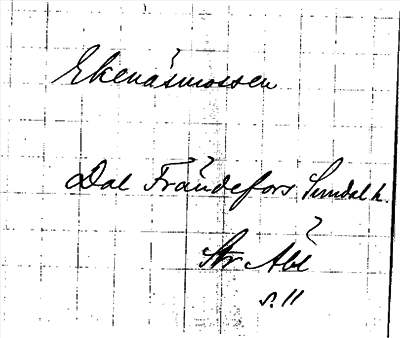 Ekenäsmossen
Dal Frändefors. Sundal h.
?
Str Abl
s. 11